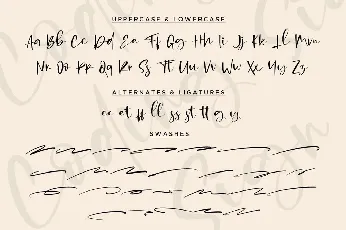 UPPERCASE & LOWERCASE
Aa Bb Cc Dd Ee Ff Gg Hh Ii Jj Kk Ll Mm
Nn Oo Pp Qq Rr Ss Tt Uu Vv Ww Xx Yy Zz
ALTERNATES & LIGATURES
ee at ff ll ss st tt
SWASHES